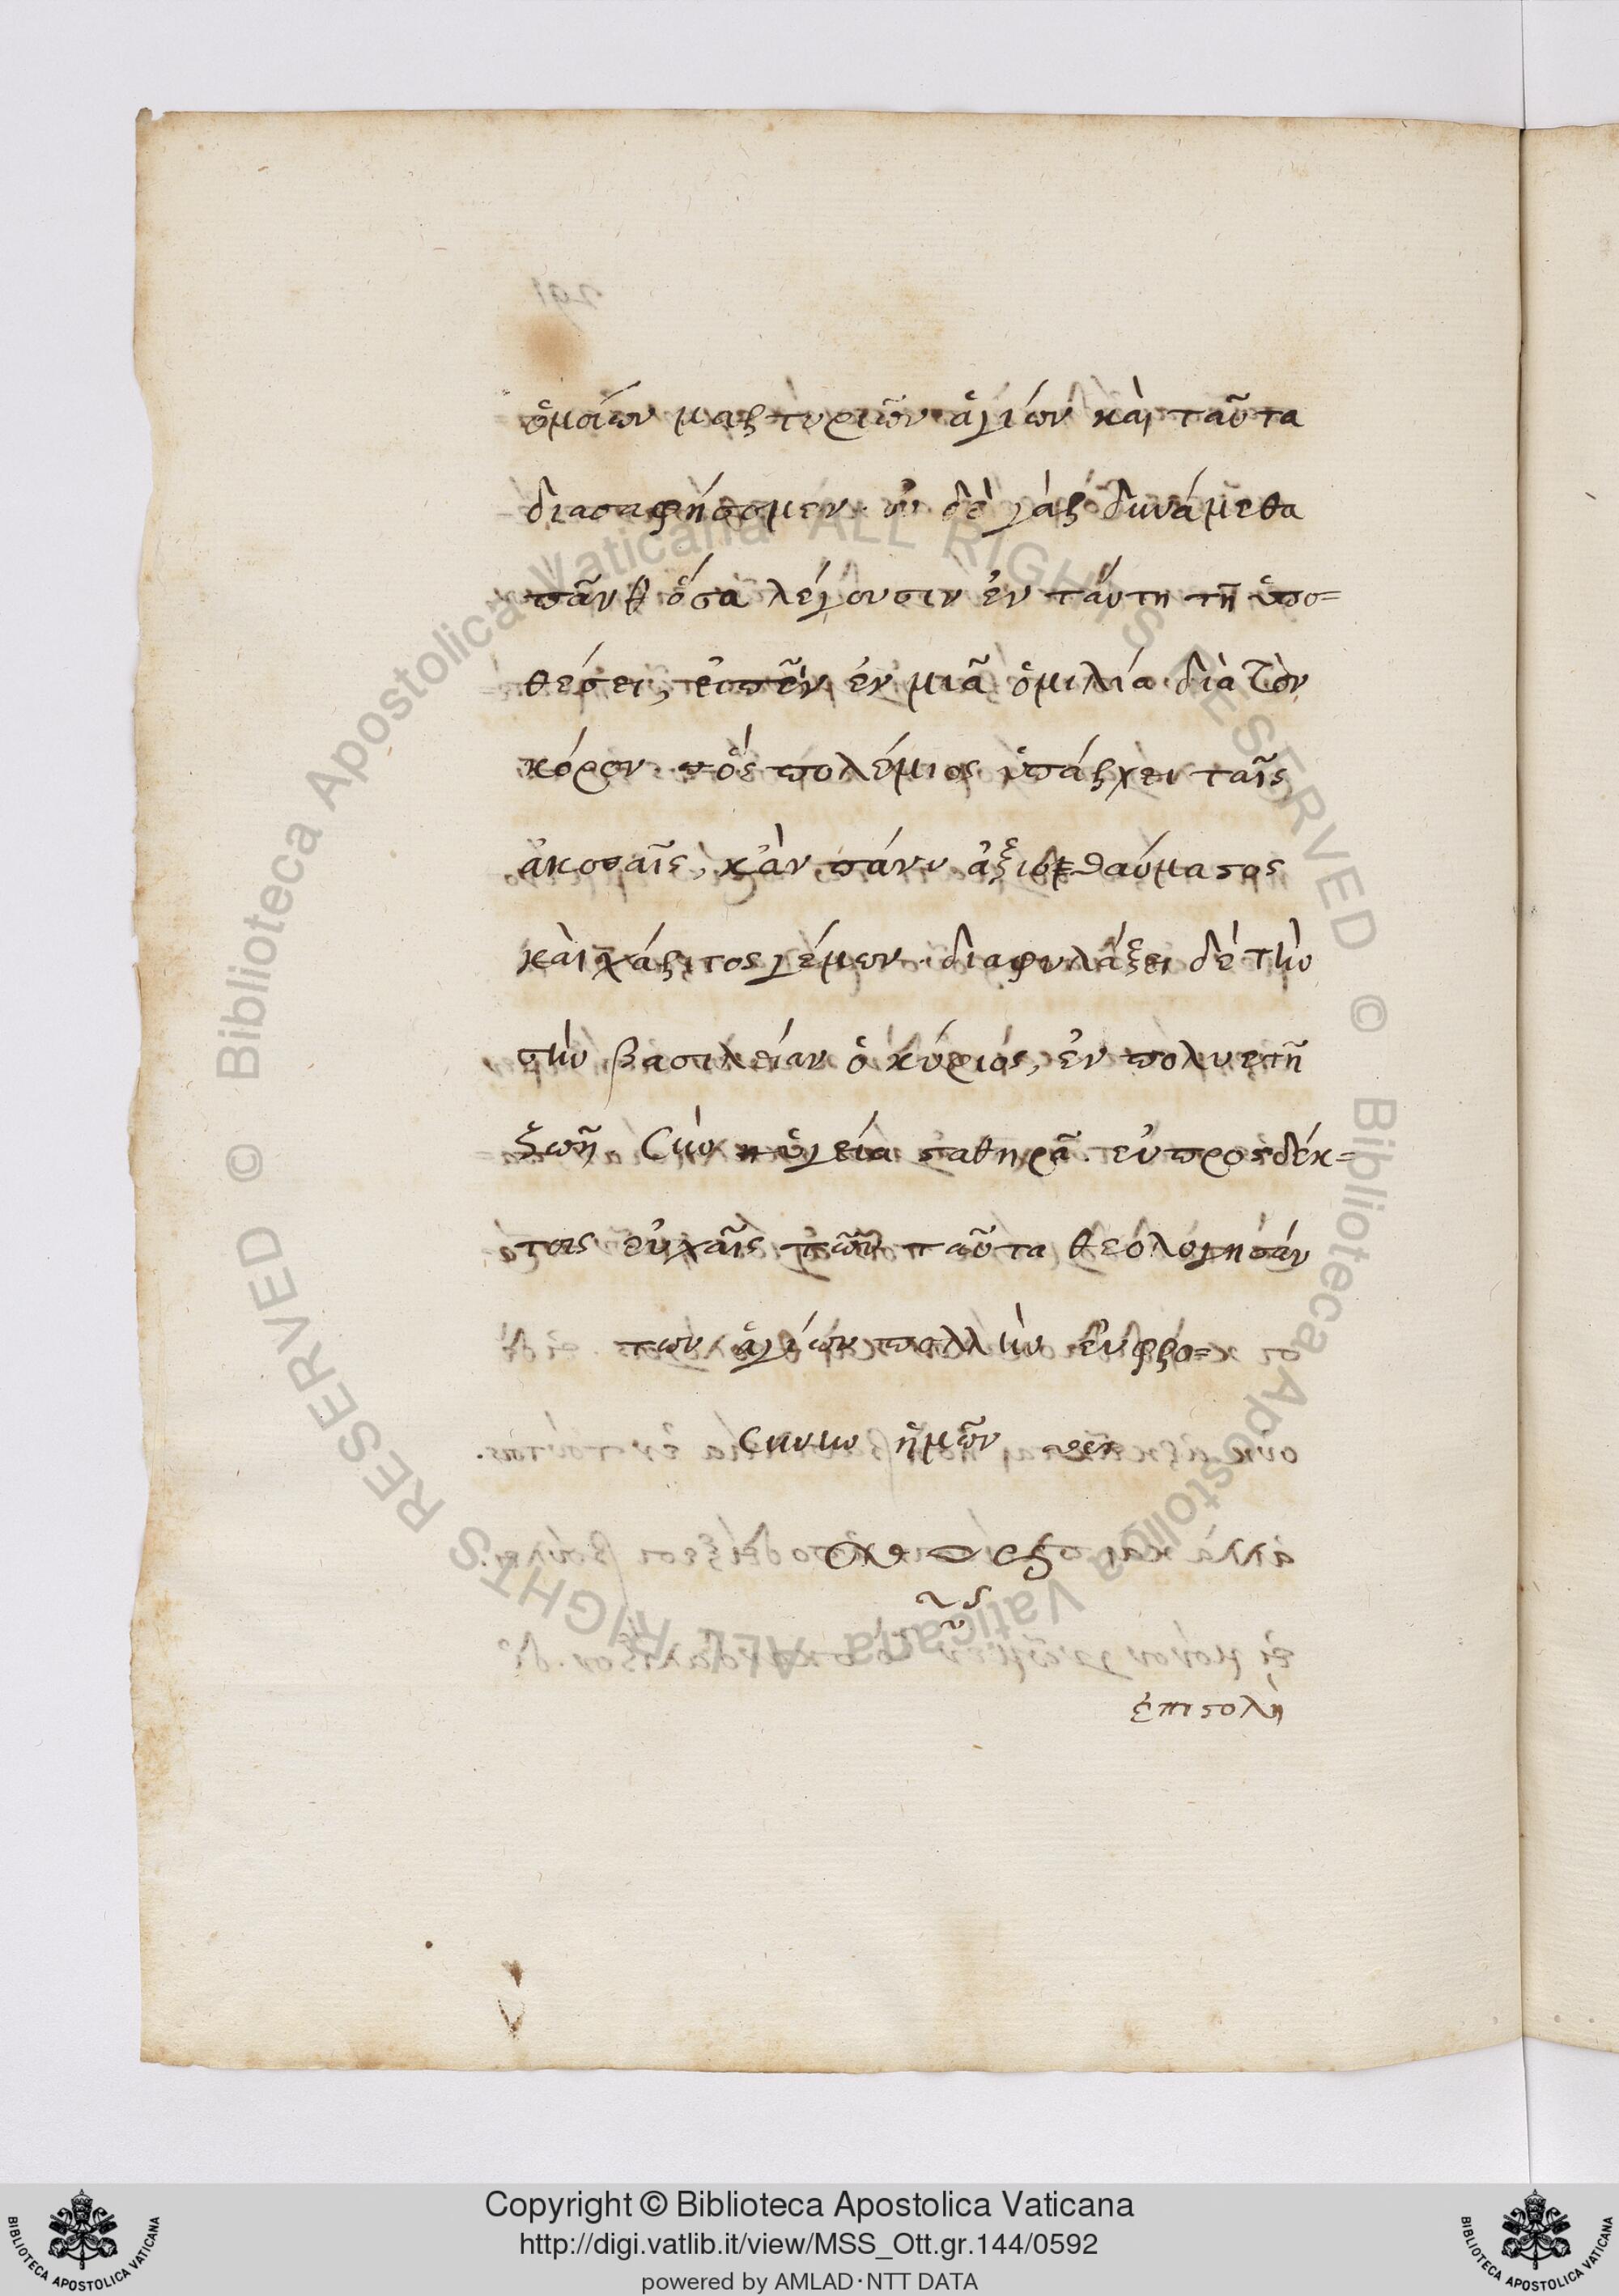 ὁμοίων μαρτυριῶν ἁγίων καὶ ταῦτα
διασαφήσομεν. οὐ δὲ γὰρ δυνάμεθα
πᾶνθ ὅσα λέγουσιν ἐν ταύτη τῆ ὑπο=
θέσει, εἰπεῖν ἐν μιᾶ ὁμιλία διὰ τὸν
κόρον. πολέμιος ὑπάρχει ταῖς
ἀκοαῖς, κἂν πάνυ θαύματος
καὶ χάριτος γέμων. διαφυλάξει δὲ τὴν
σὴν βασιλείαν ὁ κύριος, ἐν πολυετῆ
ζωῆ σὺν ὑγεία σαθηρᾶ. εὐπροσδέκ=
τοις εὐχαῖς τῶν ταῦτα θεολογησάν
των ἁγίων πολλὴν εὐφρο=
σύνην ἡμῶν
ἐπιστολὴ
Biblioteca Apostolica Vaticana ALL RIGHTS RESERVED ©
Biblioteca Apostolica Vaticana ALL RIGHTS RESERVED ©
Copyright © Biblioteca Apostolica Vaticana
http://digi.vatlib.it/view/MSS_Ott.gr.144/0592
powered by AMLAD·NTT DATA
BIBLIOTECA APOSTOLICA VATICANA
BIBLIOTECA APOSTOLICA VATICANA